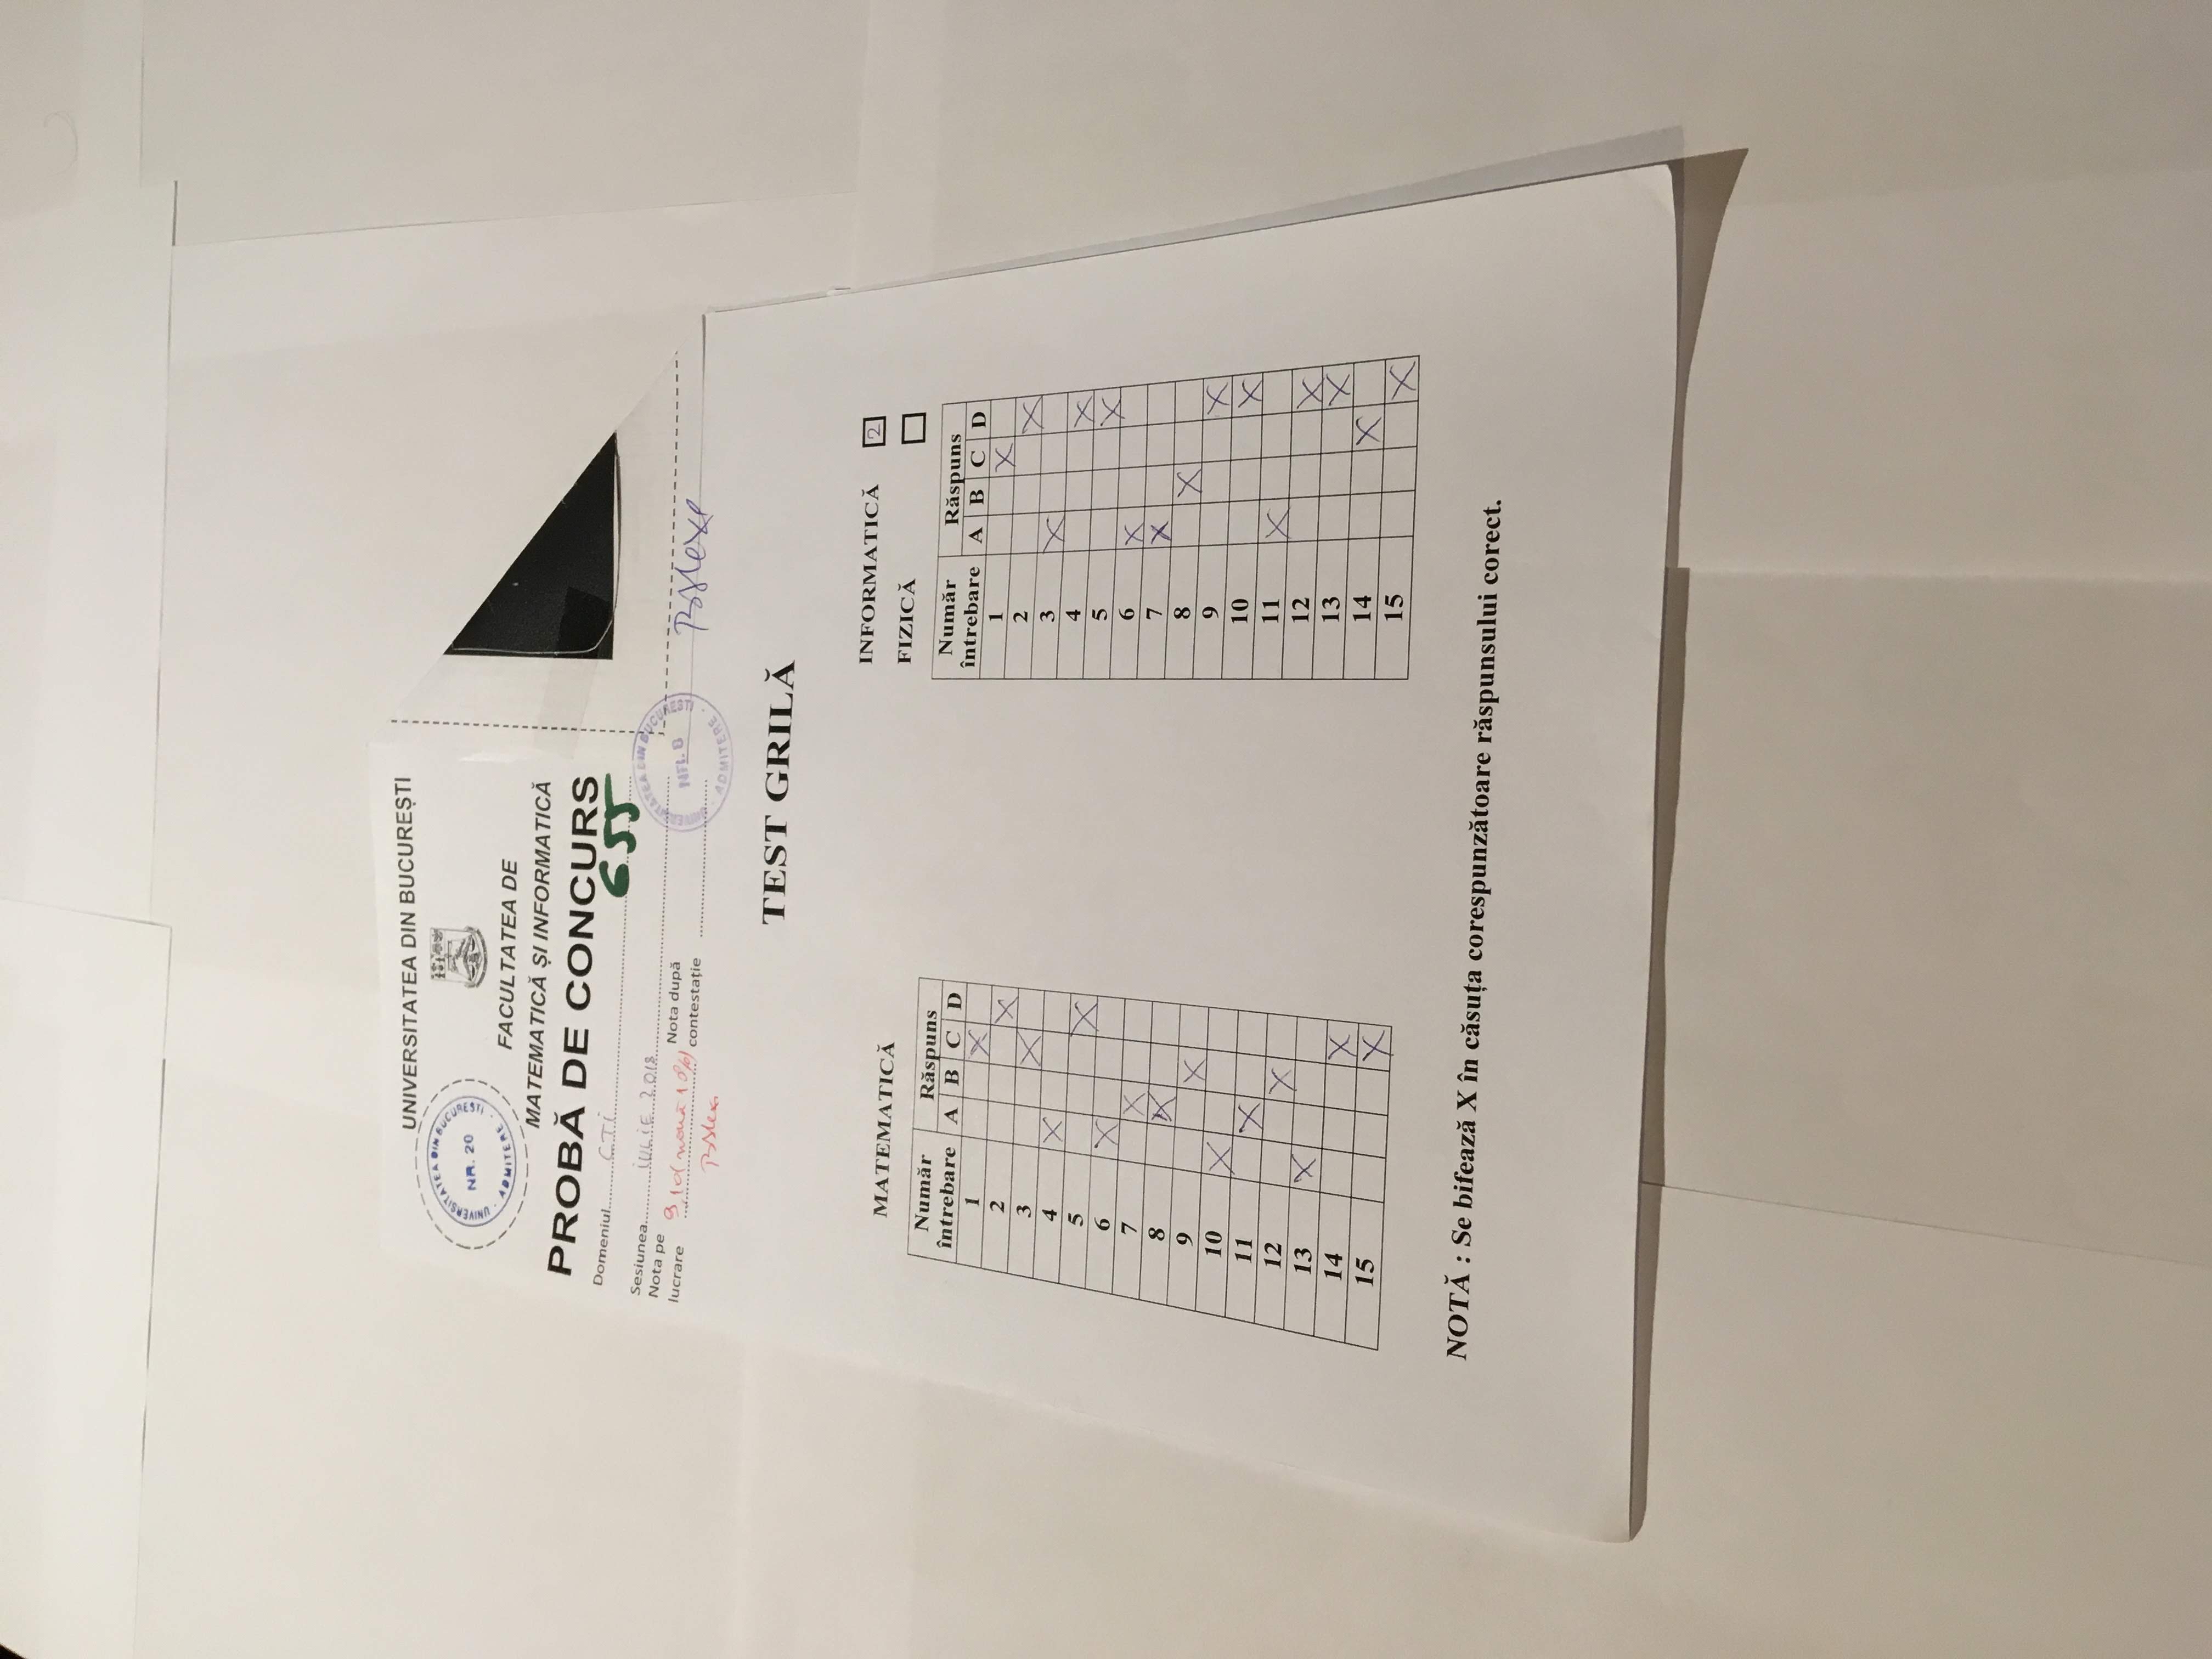 UNIVERSITATEA DIN BUCUREȘTI
UNIVERSITATEA DIN BUCUREȘTI
NR. 20
ADMITERE
FACULTATEA DE
MATEMATICĂ ȘI INFORMATICĂ
PROBĂ DE CONCURS
Domeniul CTI
655
Sesiunea IULIE 2018
Nota pe
lucrare 9,10 (nouă 10%) Nota după
contestație
UNIVERSITATEA DIN BUCUREȘTI
ADMITERE
TEST GRILĂ
MATEMATICĂ
Număr
întrebare
Răspuns
A B C D
1 X
2 X
3 X
4 X
5 X
6 X
7 X
8 X
9 X
10 X
11 X
12 X
13 X
14 X
15 X
INFORMATICĂ 2
FIZICĂ
Număr
întrebare
Răspuns
A B C D
1 X
2 X
3 X
4 X
5 X
6 X
7 X
8 X
9 X
10 X
11 X
12 X
13 X
14 X
15 X
NOTĂ : Se bifează X în căsuța corespunzătoare răspunsului corect.